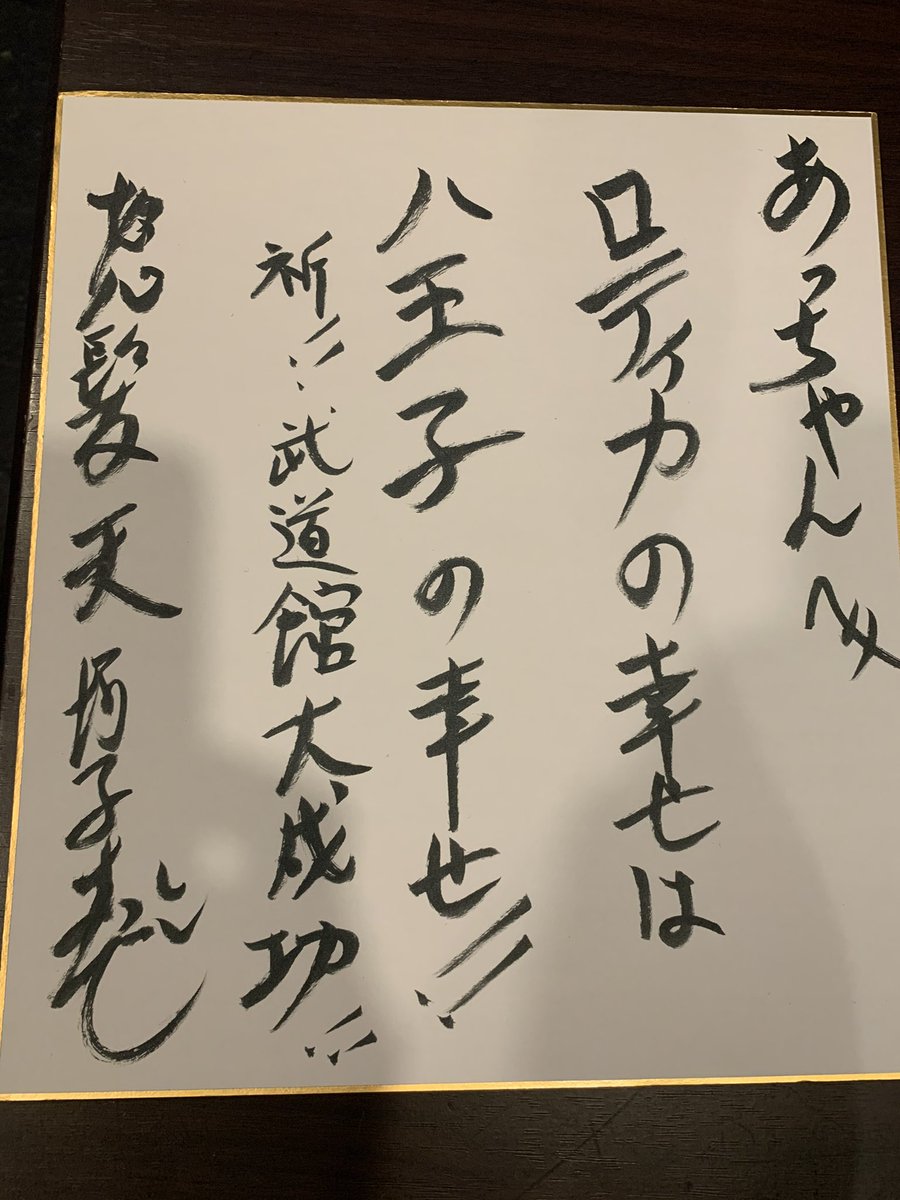 あっちゃんへ
ロティカの幸せは
八王子の幸せ!!
祈!!武道館大成功!!
怒髪天 増子直純